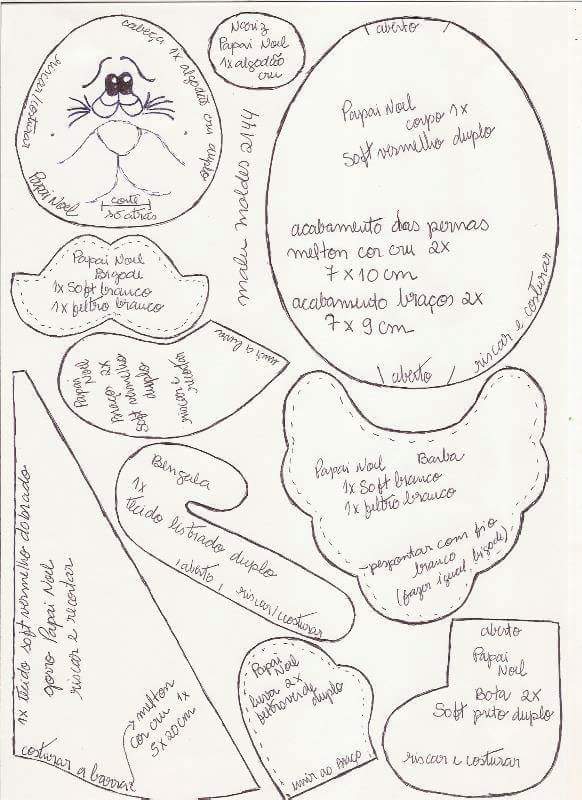 cabeça 1x algodão cru duplo
riscar/costurar
Papai Noel
corte
só atrás
Nariz
Papai Noel
1x algodão
cru
malu moldes 2144
aberto
Papai Noel
corpo 1x
Soft vermelho duplo
acabamento das pernas
melton cor cru 2x
7 x 10 cm
acabamento braços 2x
7 x 9 cm
aberto
riscar e costurar
Papai Noel
Bigode
1x Soft branco
1x feltro branco
Papai
Noel
Braço 2x
Soft vermelho
duplo
riscar e
costurar
unir a luva
1x tecido soft vermelho dobrado
gorro Papai Noel
riscar e recortar
costurar a barra
melton
cor cru 1x
5x20cm
Bengala
1x
tecido listrado duplo
aberto
riscar/costurar
Papai Noel Barba
1x Soft branco
1x feltro branco
pespontar com fio
branco
(fazer igual bigode)
Papai
Noel
luva 2x
feltro verde
duplo
unir ao braço
aberto
Papai
Noel
Bota 2x
Soft preto duplo
riscar e costurar